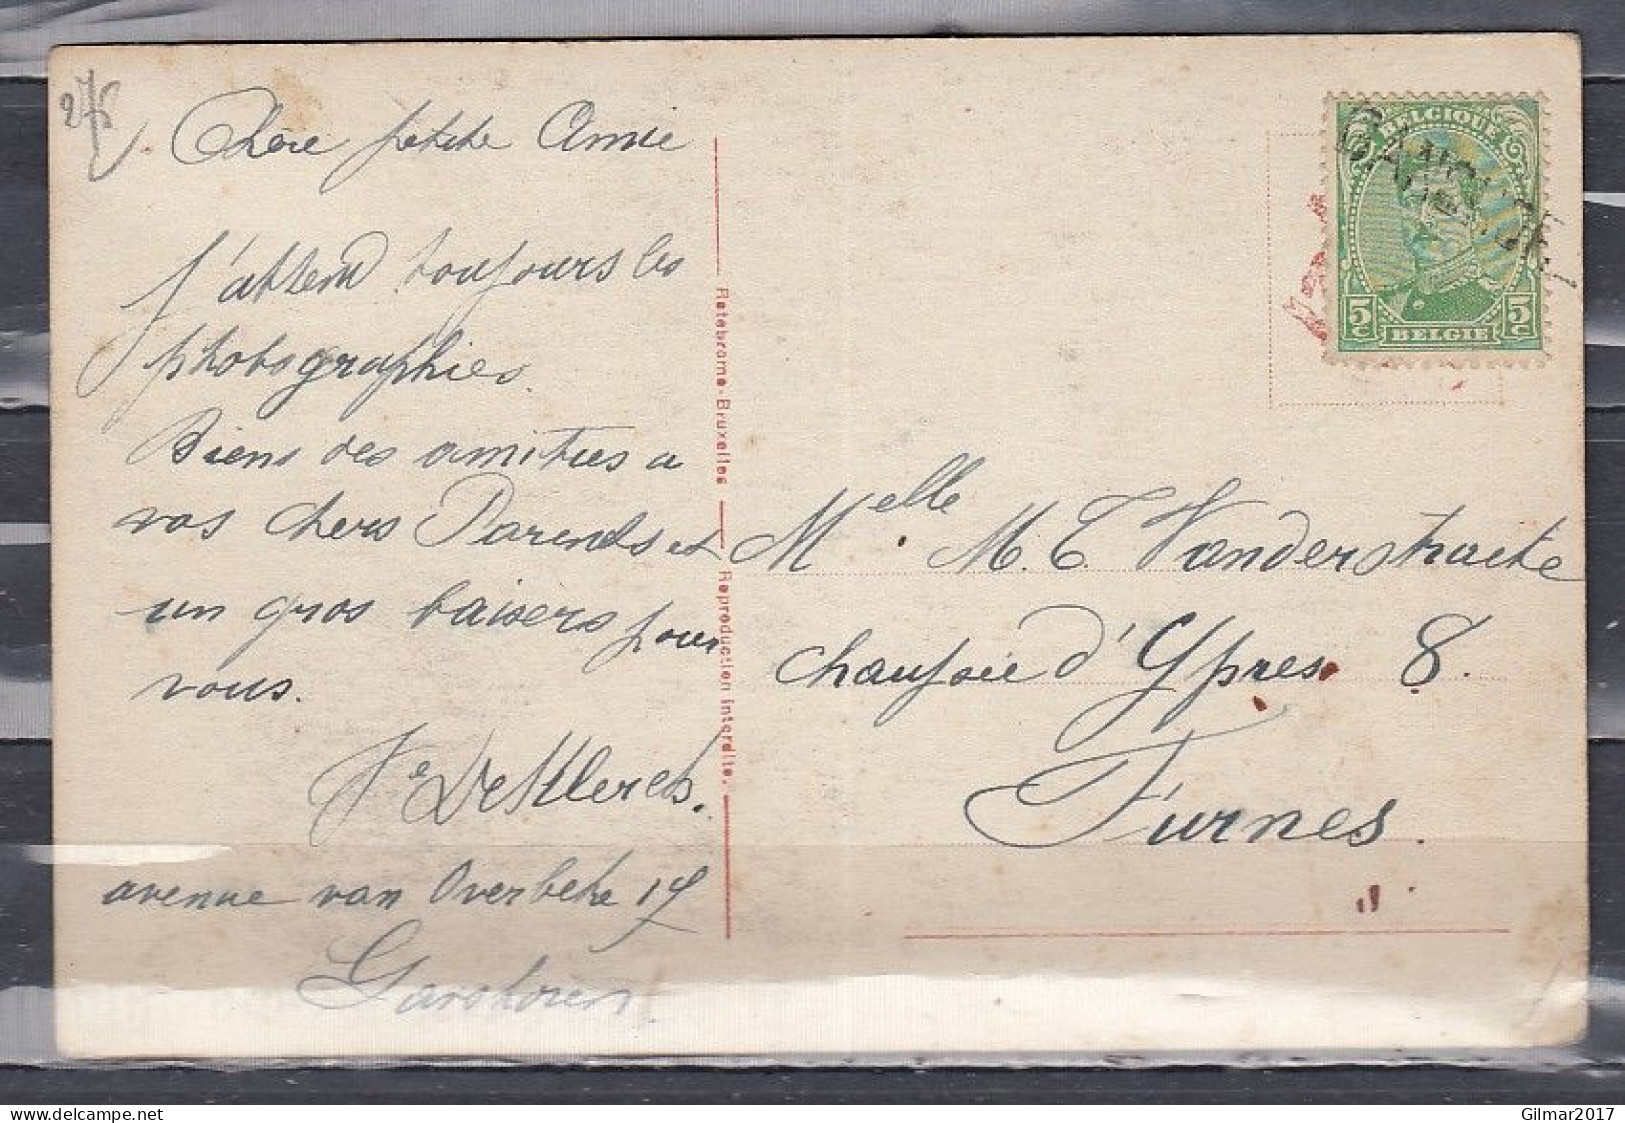 275
Chère petite Amie
J'attend toujours les
photographies.
Biens des amities a
vos chers Parents et
un gros baisers pour
vous.
DeKlerck.
avenue van Overbeke 17
Ganshoren
Retebrome-Bruxelles
Reproduction interdite.
BELGIQUE
5c 5c
BELGIE
Melle M. C. Vanderstraete
chaussée d'Ypres 8.
Furnes.
Gilmar2017